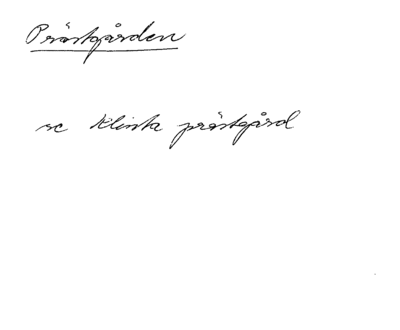 Prästgården
se Klinta prästgård